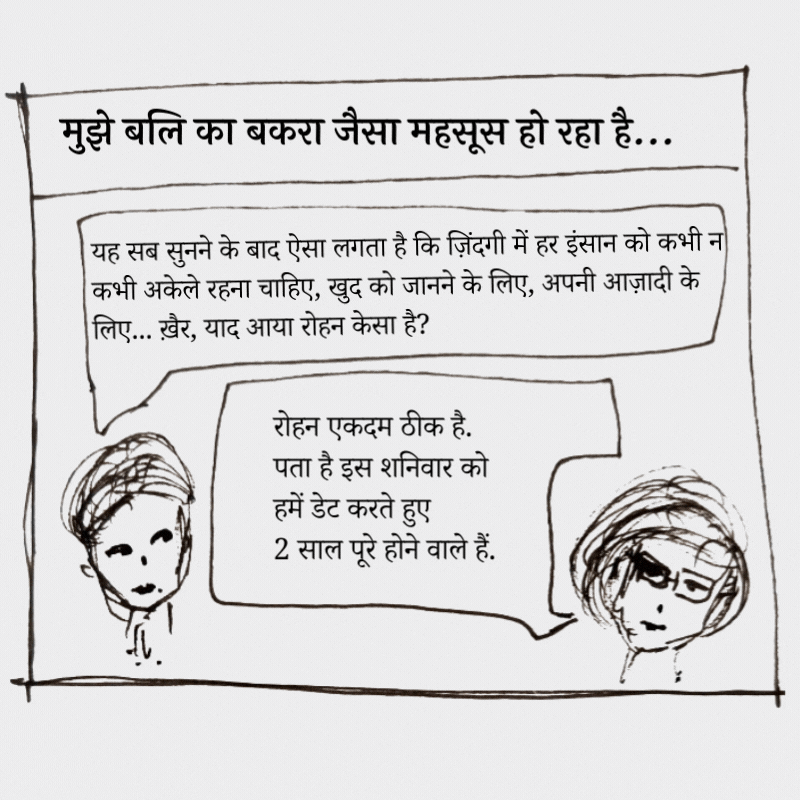 मुझे बलि का बकरा जैसा महसूस हो रहा है...
यह सब सुनने के बाद ऐसा लगता है कि ज़िंदगी में हर इंसान को कभी न
कभी अकेले रहना चाहिए, खुद को जानने के लिए, अपनी आज़ादी के
लिए... ख़ैर, याद आया रोहन केसा है?
रोहन एकदम ठीक है.
पता है इस शनिवार को
हमें डेट करते हुए
2 साल पूरे होने वाले हैं.